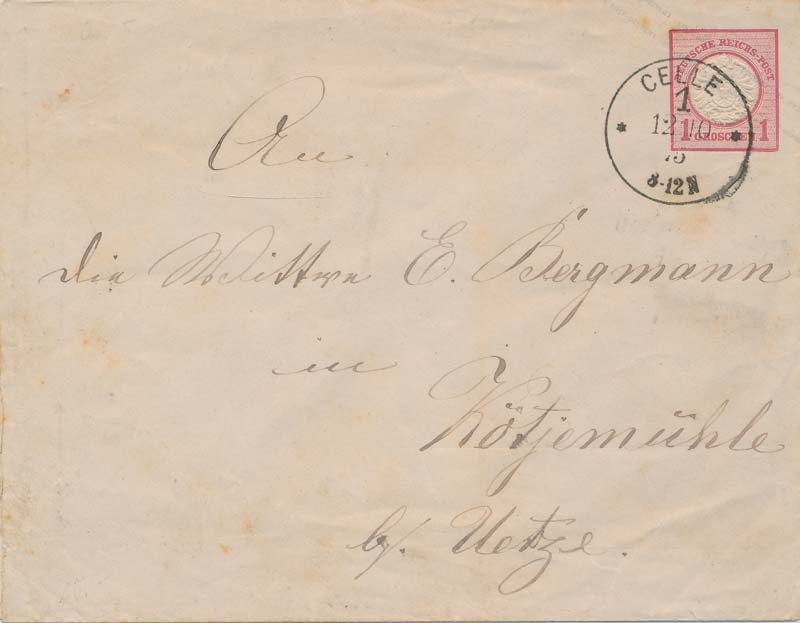 DEUTSCHE REICHS-POST
1 GROSCHEN 1
CELLE
1
12 10
75
8-12 N
An
die Wittwe E. Bergmann
in
Kötjemühle
b/. Uetze.